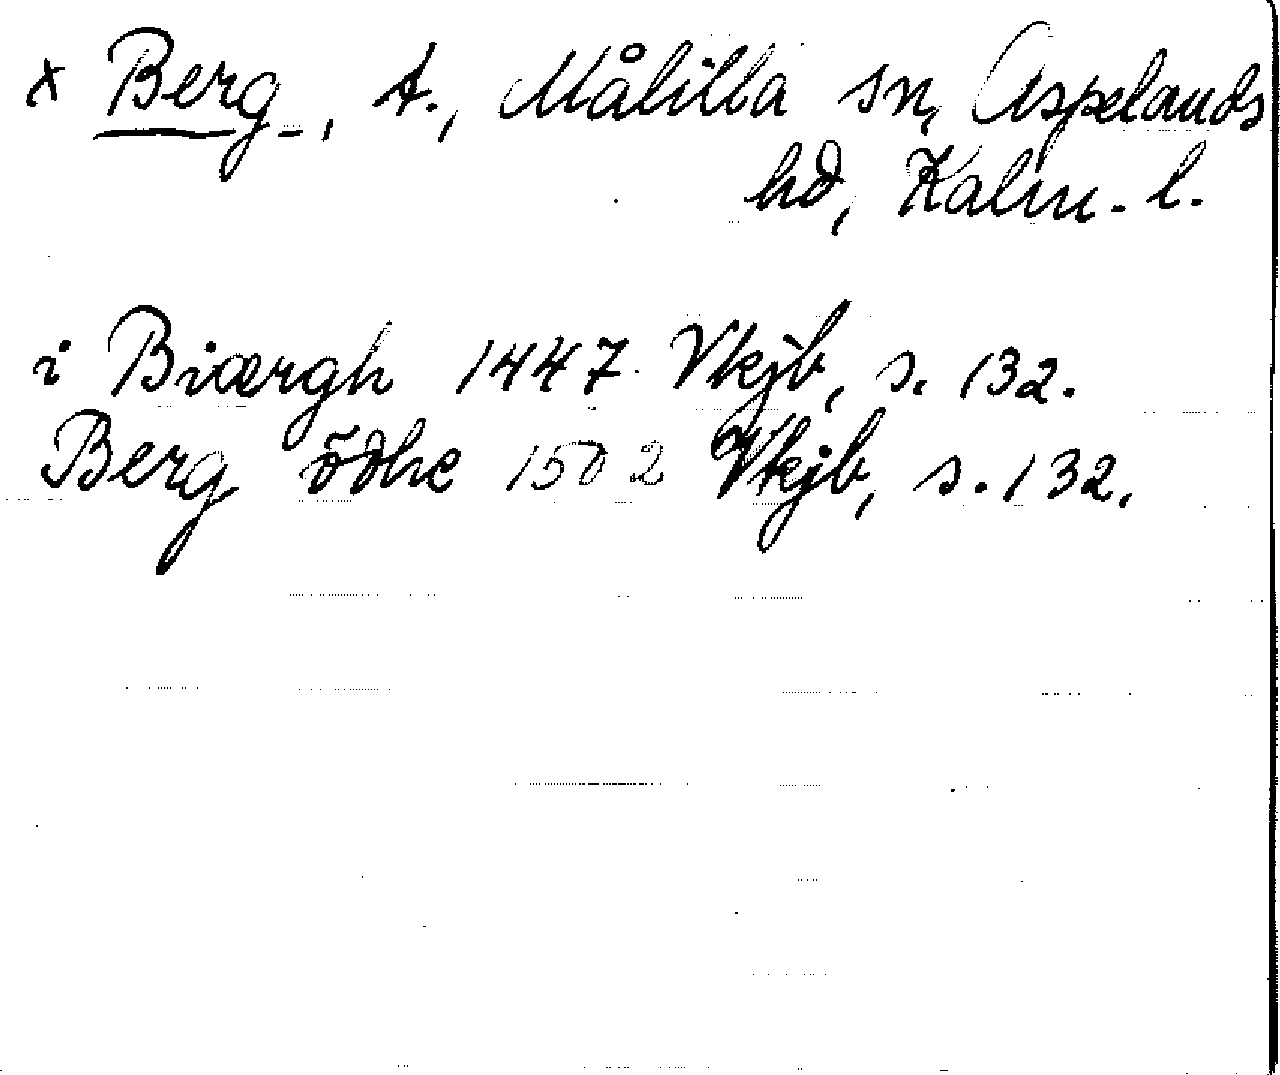 x Berg, t., Målilla sn, Aspelands
hd, Kalm. l.
i Biærgh 1447 Vkjb, s. 132.
Berg ödhe 1502 Vkjb, s. 132.